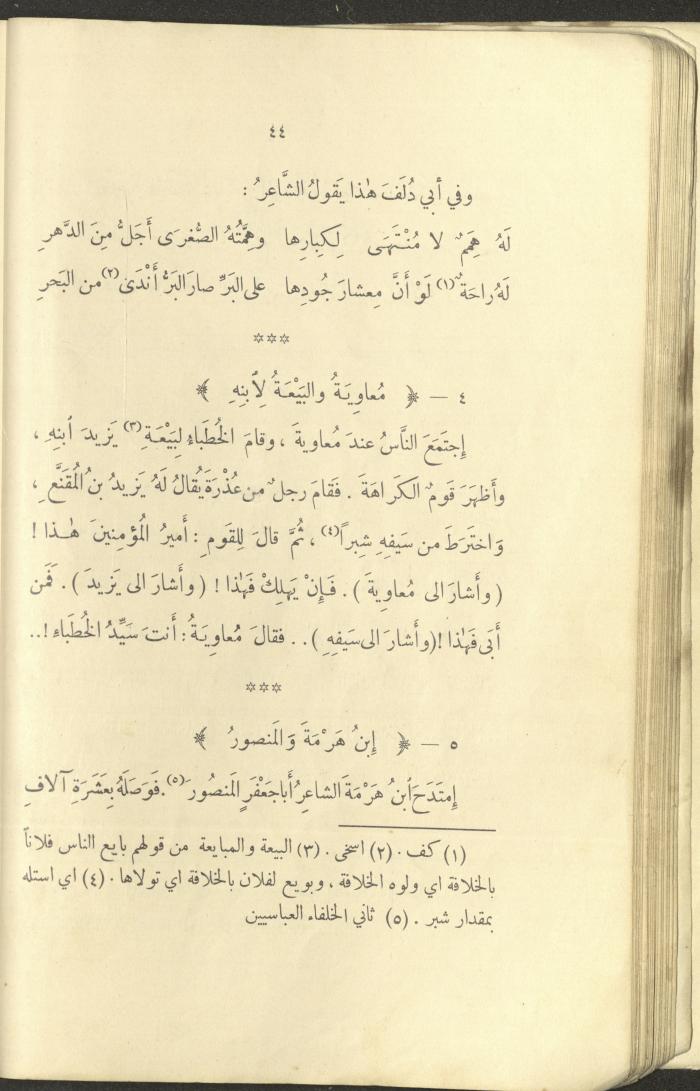 ٤٤
وفي أبي دُلَفَ هٰذا يَقولُ الشَّاعِرُ :
لَهُ هِمَمٌ لا مُنْتَهَى لِكِبارِها وهِمَّتُهُ الصُّغرَى أَجَلُّ مِنَ الدَّهرِ
لَهُ راحَةٌ (١) لَوْ أَنَّ مِعشارَ جُودِها على البَرِّ صارَ البَرُّ أَنْدَىٰ (٢) من البَحرِ
***
٤ — ﴿ مُعاوِيَةُ والبَيْعَةُ لِأبنِهِ ﴾
إِجتَمَعَ النَّاسُ عندَ مُعاويةَ ، وقامَ الخُطَباءُ لِبَيْعَةِ (٣) يَزيدَ أبنِهِ ،
وأَظهَرَ قَومٌ الكَراهَةَ . فَقامَ رجلٌ من عُذْرَةَ يُقالُ لَهُ يَزيدُ بنُ المُقَنَّعِ ،
وَاختَرَطَ من سَيفِهِ شِبراً (٤) ، ثُمَّ قالَ لِلقَومِ : أَميرُ المُؤمِنينَ هٰذا !
( وأَشارَ الى مُعاوِيةَ ) . فَإِنْ يَهلِكْ فَهٰذا ! ( وأَشارَ الى يَزيدَ ) . فَمَن
أَبَى فَهٰذا ! ( وأَشارَ الى سَيفِهِ ) . . فقالَ مُعاوِيَةُ : أَنتَ سَيِّدُ الخُطَباءِ ! . .
***
٥ — ﴿ إِبنُ هَرْمَةَ وَالمَنصورُ ﴾
إِمتَدَحَ أبنُ هَرْمَةَ الشاعِرُ أَبا جَعْفَرٍ المَنصُورَ (٥) . فَوَصَلَهُ بِعَشَرَةِ آلافِ
(١) كف . (٢) اسخى . (٣) البيعة والمبايعة من قولهم بايع الناس فلاناً
بالخلافة اي ولوه الخلافة ، وبويع لفلان بالخلافة اي تولاها . (٤) اي استله
بمقدار شبر . (٥) ثاني الخلفاء العباسيين